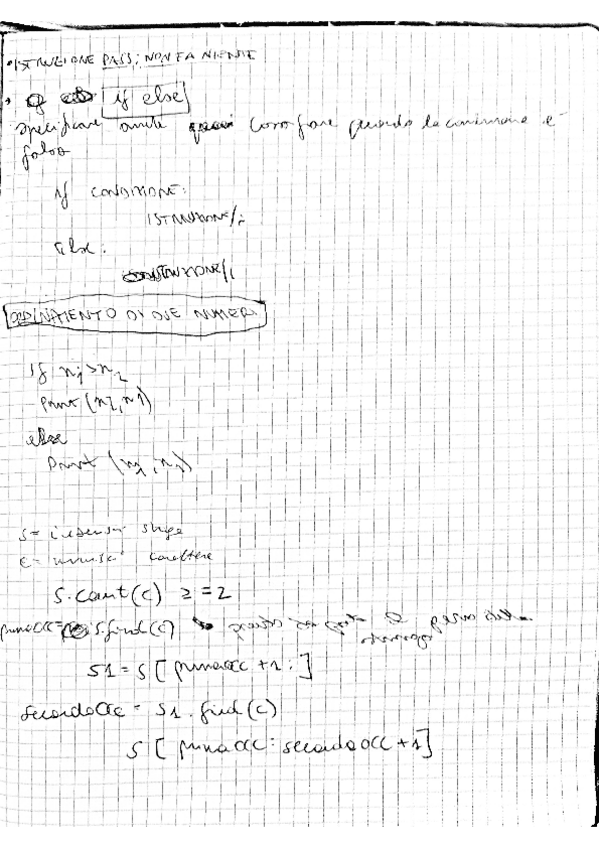 • ISTRUZIONE PASS; NON FA NIENTE
• if else
specificare anche cosa fare quando la condizione è
falsa
if CONDIZIONE:
ISTRUZIONE/i
else:
ISTRUZIONE/i
ORDINAMENTO DI DUE NUMERI
if n1>n2
print (n2,n1)
else
print (n1,n2)
S = inserisci stringa
C = inserisci carattere
S.count(c) >=2
primaocc= S.find(c)
S1 = S [primaocc +1 :]
secondaocc = S1.find(c)
S [primaocc: secondaocc +1]